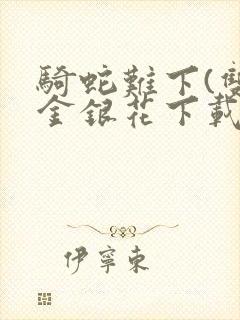 騎蛇難下(雙
金銀花下載
伊寧東